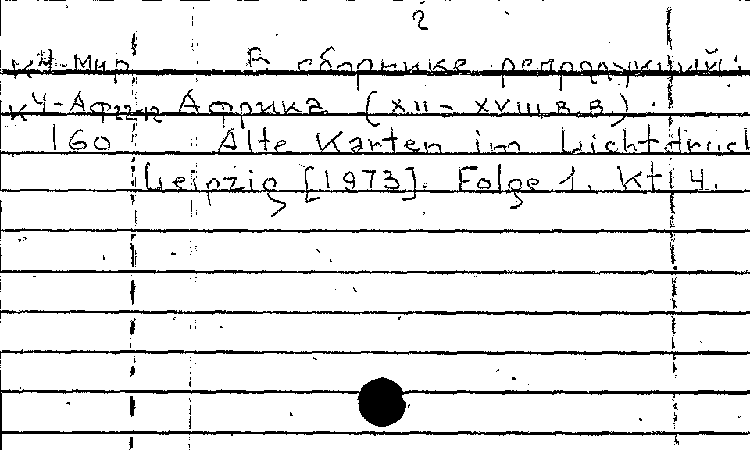 2
К4-Мир В сборнике репродукций:
К4-Аф Африка (XII - XVIII в.в.).
160 Alte Karten im Lichtdruck
Leipzig [1973]. Folge 1. Kt 4.